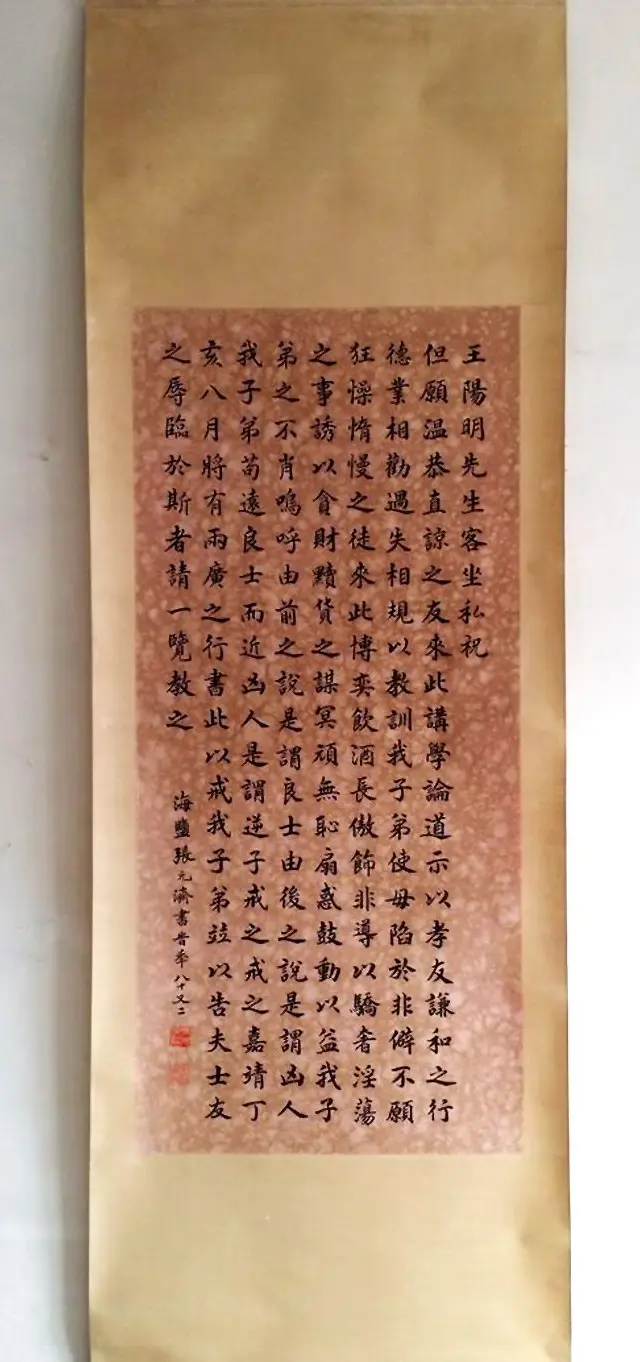 王陽明先生客坐私祝
但願溫恭直諒之友來此講學論道示以孝友謙和之行
德業相勸過失相規以教訓我子弟使毋陷於非僻不願
狂懆惰慢之徒來此博奕飲酒長傲飾非導以驕奢淫蕩
之事誘以貪財黷貨之謀冥頑無恥扇惑鼓動以益我子
弟之不肖嗚呼由前之說是謂良士由後之說是謂凶人
我子弟苟遠良士而近凶人是謂逆子戒之戒之嘉靖丁
亥八月將有兩廣之行書此以戒我子弟竝以告夫士友
之辱臨於斯者請一覽教之
海鹽張元濟書昔年八十又二